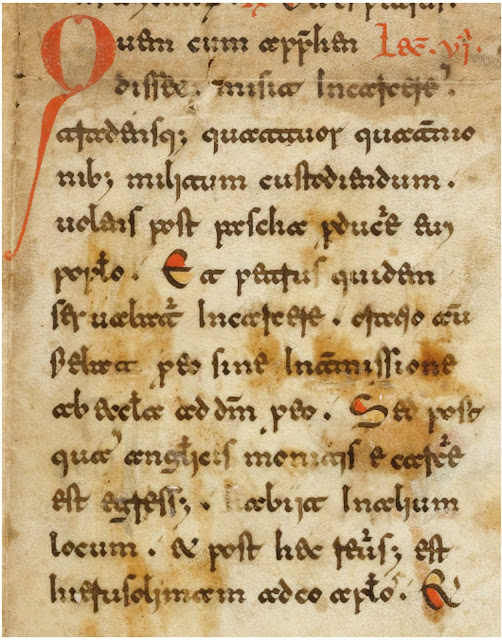 Quem cum appħen Lec. vij.
disset. misit Incarcere'.
atradensq; quattuor quat̄nio
nib; militum custodiendum.
uolens post pascha ꝓduc̄e eu
popl̄o. Et petrus quidem
seruabat̄ Incarcere. oratio aū
fiebat ꝓeo sine Int̄missione
ab eccl̄a ad dm̄ ꝓeo. Sed post
qua' angl̄icis monitis e carc̄e
est egress;. abiit Inalium
locum. & post hec reu̅s; est
hierusolimam adeo apl̄o.